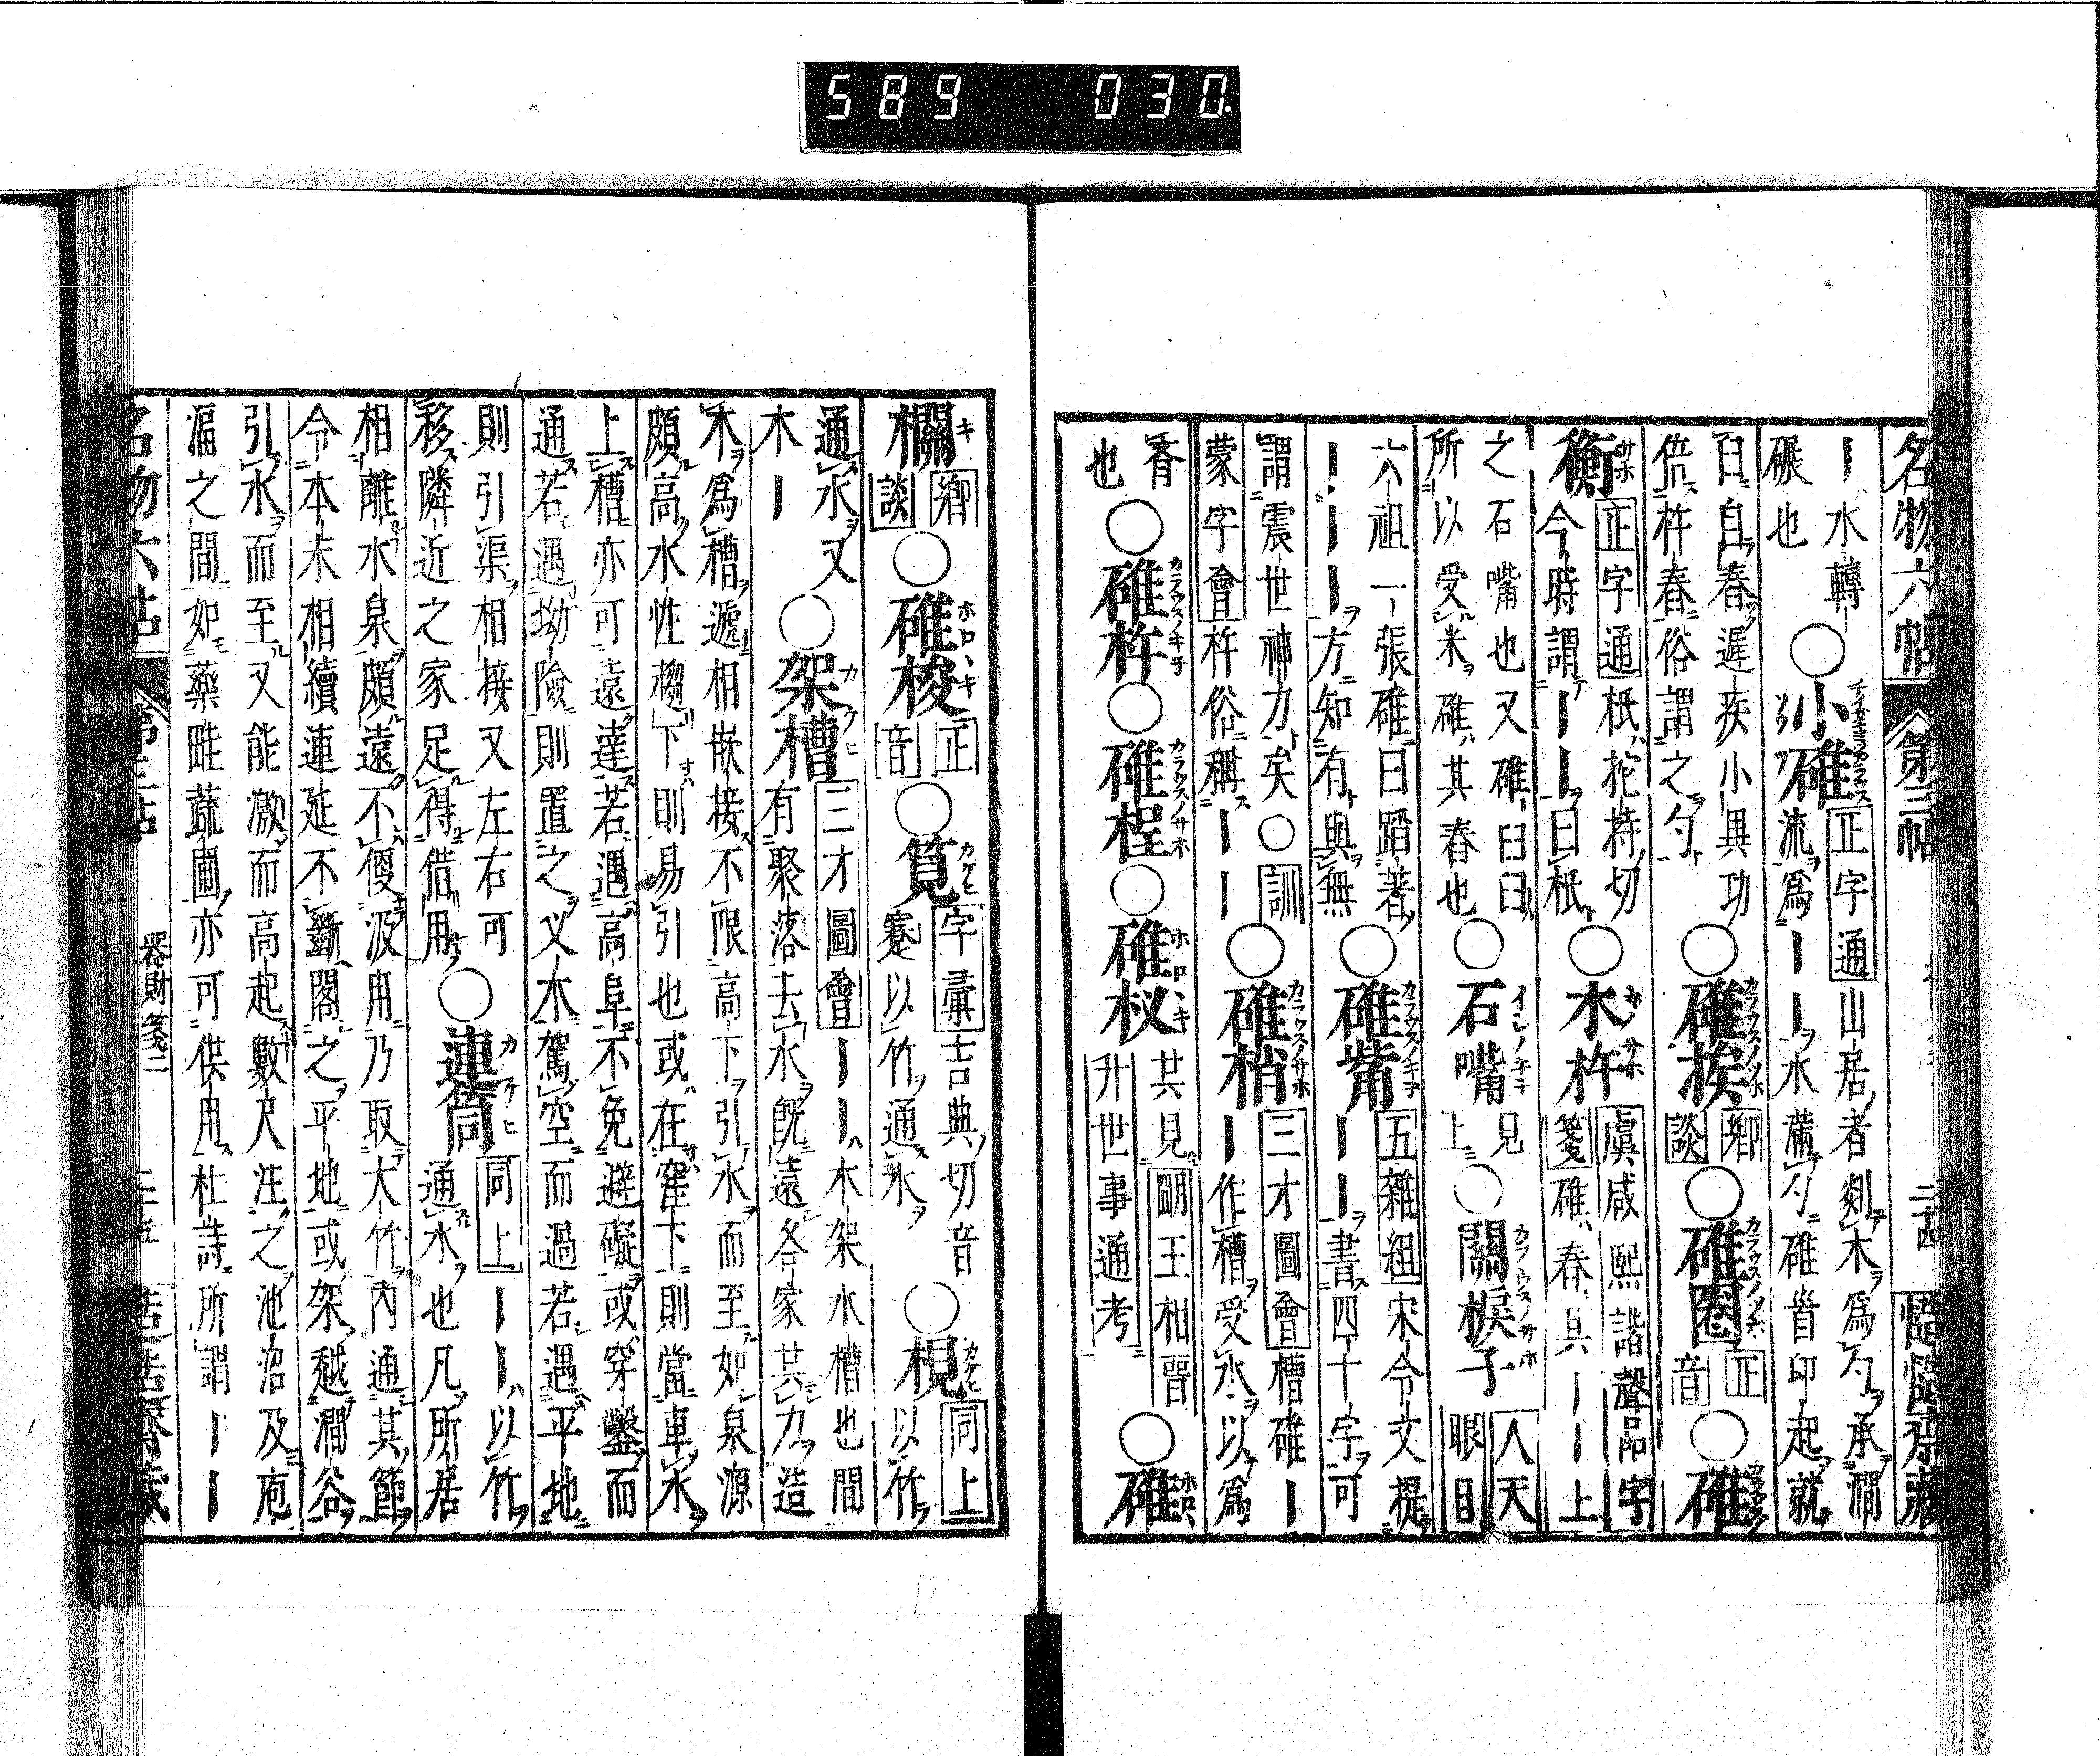 589 030
名物六帖 第三帖 二十四
｜水轉
碾也
○小碓
正字通山居者剡木爲勺承澗
引流爲｜｜水滿勺碓首卬起就
臼自舂遲疾小異功
倍杵舂俗謂之勺
○碓挨 鄉談 ○碓圈 正音 ○碓
衡
正字通柢 持切
今時謂｜｜曰柢
○木杵
虞咸熙諧聲品字
箋碓舂具｜｜上
之石嘴也又碓臼臼
所以受米碓其舂也
○石嘴 見上 ○關棙子 人天眼目
六祖一張碓曰蹈著
｜｜｜｜方知有與無
○碓觜
五雜組宋令文提
｜｜書四十字可
謂震世神力矣○訓
蒙字會杵俗稱｜｜
○碓梢
三才圖會槽碓｜
｜作槽受水以爲
舂也
○碓杵 ○碓桯 ○碓杈
共見明王相晋
升世事通考
○碓
欄 鄉談 ○碓梭 正音 ○筧
字彙吉典切音
蹇以竹通水
○梘 同上以竹
通水又
木｜
○架槽
三才圖會｜｜木架水槽也間
有聚落去水既遠各家共力造
木爲槽遞相嵌接不限高下引水而至如泉源
頗高水性趨下則易引也或在窪下則當車水
上槽亦可遠達若遇高阜不免避礙或穿鑿而
通若遇坳險則置之乂木駕空而過若遇平地
則引渠相接又左右可
移隣近之家足得借用
○連筒
同上｜｜以竹
通水也凡所居
相離水泉頗遠不便汲用乃取大竹內通其節
令本末相續連延不斷閣之平地或架越澗谷
引水而至又能激而高起數尺注之池沼及庖
湢之間如藥畦蔬圃亦可供用杜詩所謂｜｜
名物六帖 第三帖 器財箋二 二十五